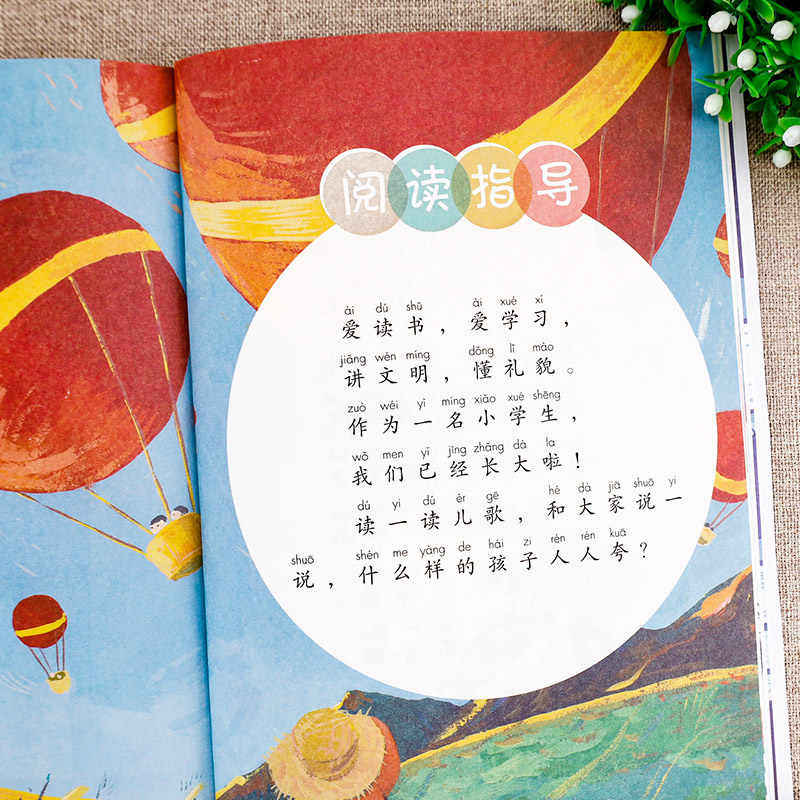 阅读指导
ài dú shū ài xué xí
爱读书，爱学习，
jiǎng wén míng dǒng lǐ mào
讲文明，懂礼貌。
zuò wéi yì míng xiǎo xué shēng
作为一名小学生，
wǒ men yǐ jīng zhǎng dà la
我们已经长大啦！
dú yi dú ér gē hé dà jiā shuō yi
读一读儿歌，和大家说一
shuō shén me yàng de hái zi rén rén kuā
说，什么样的孩子人人夸？